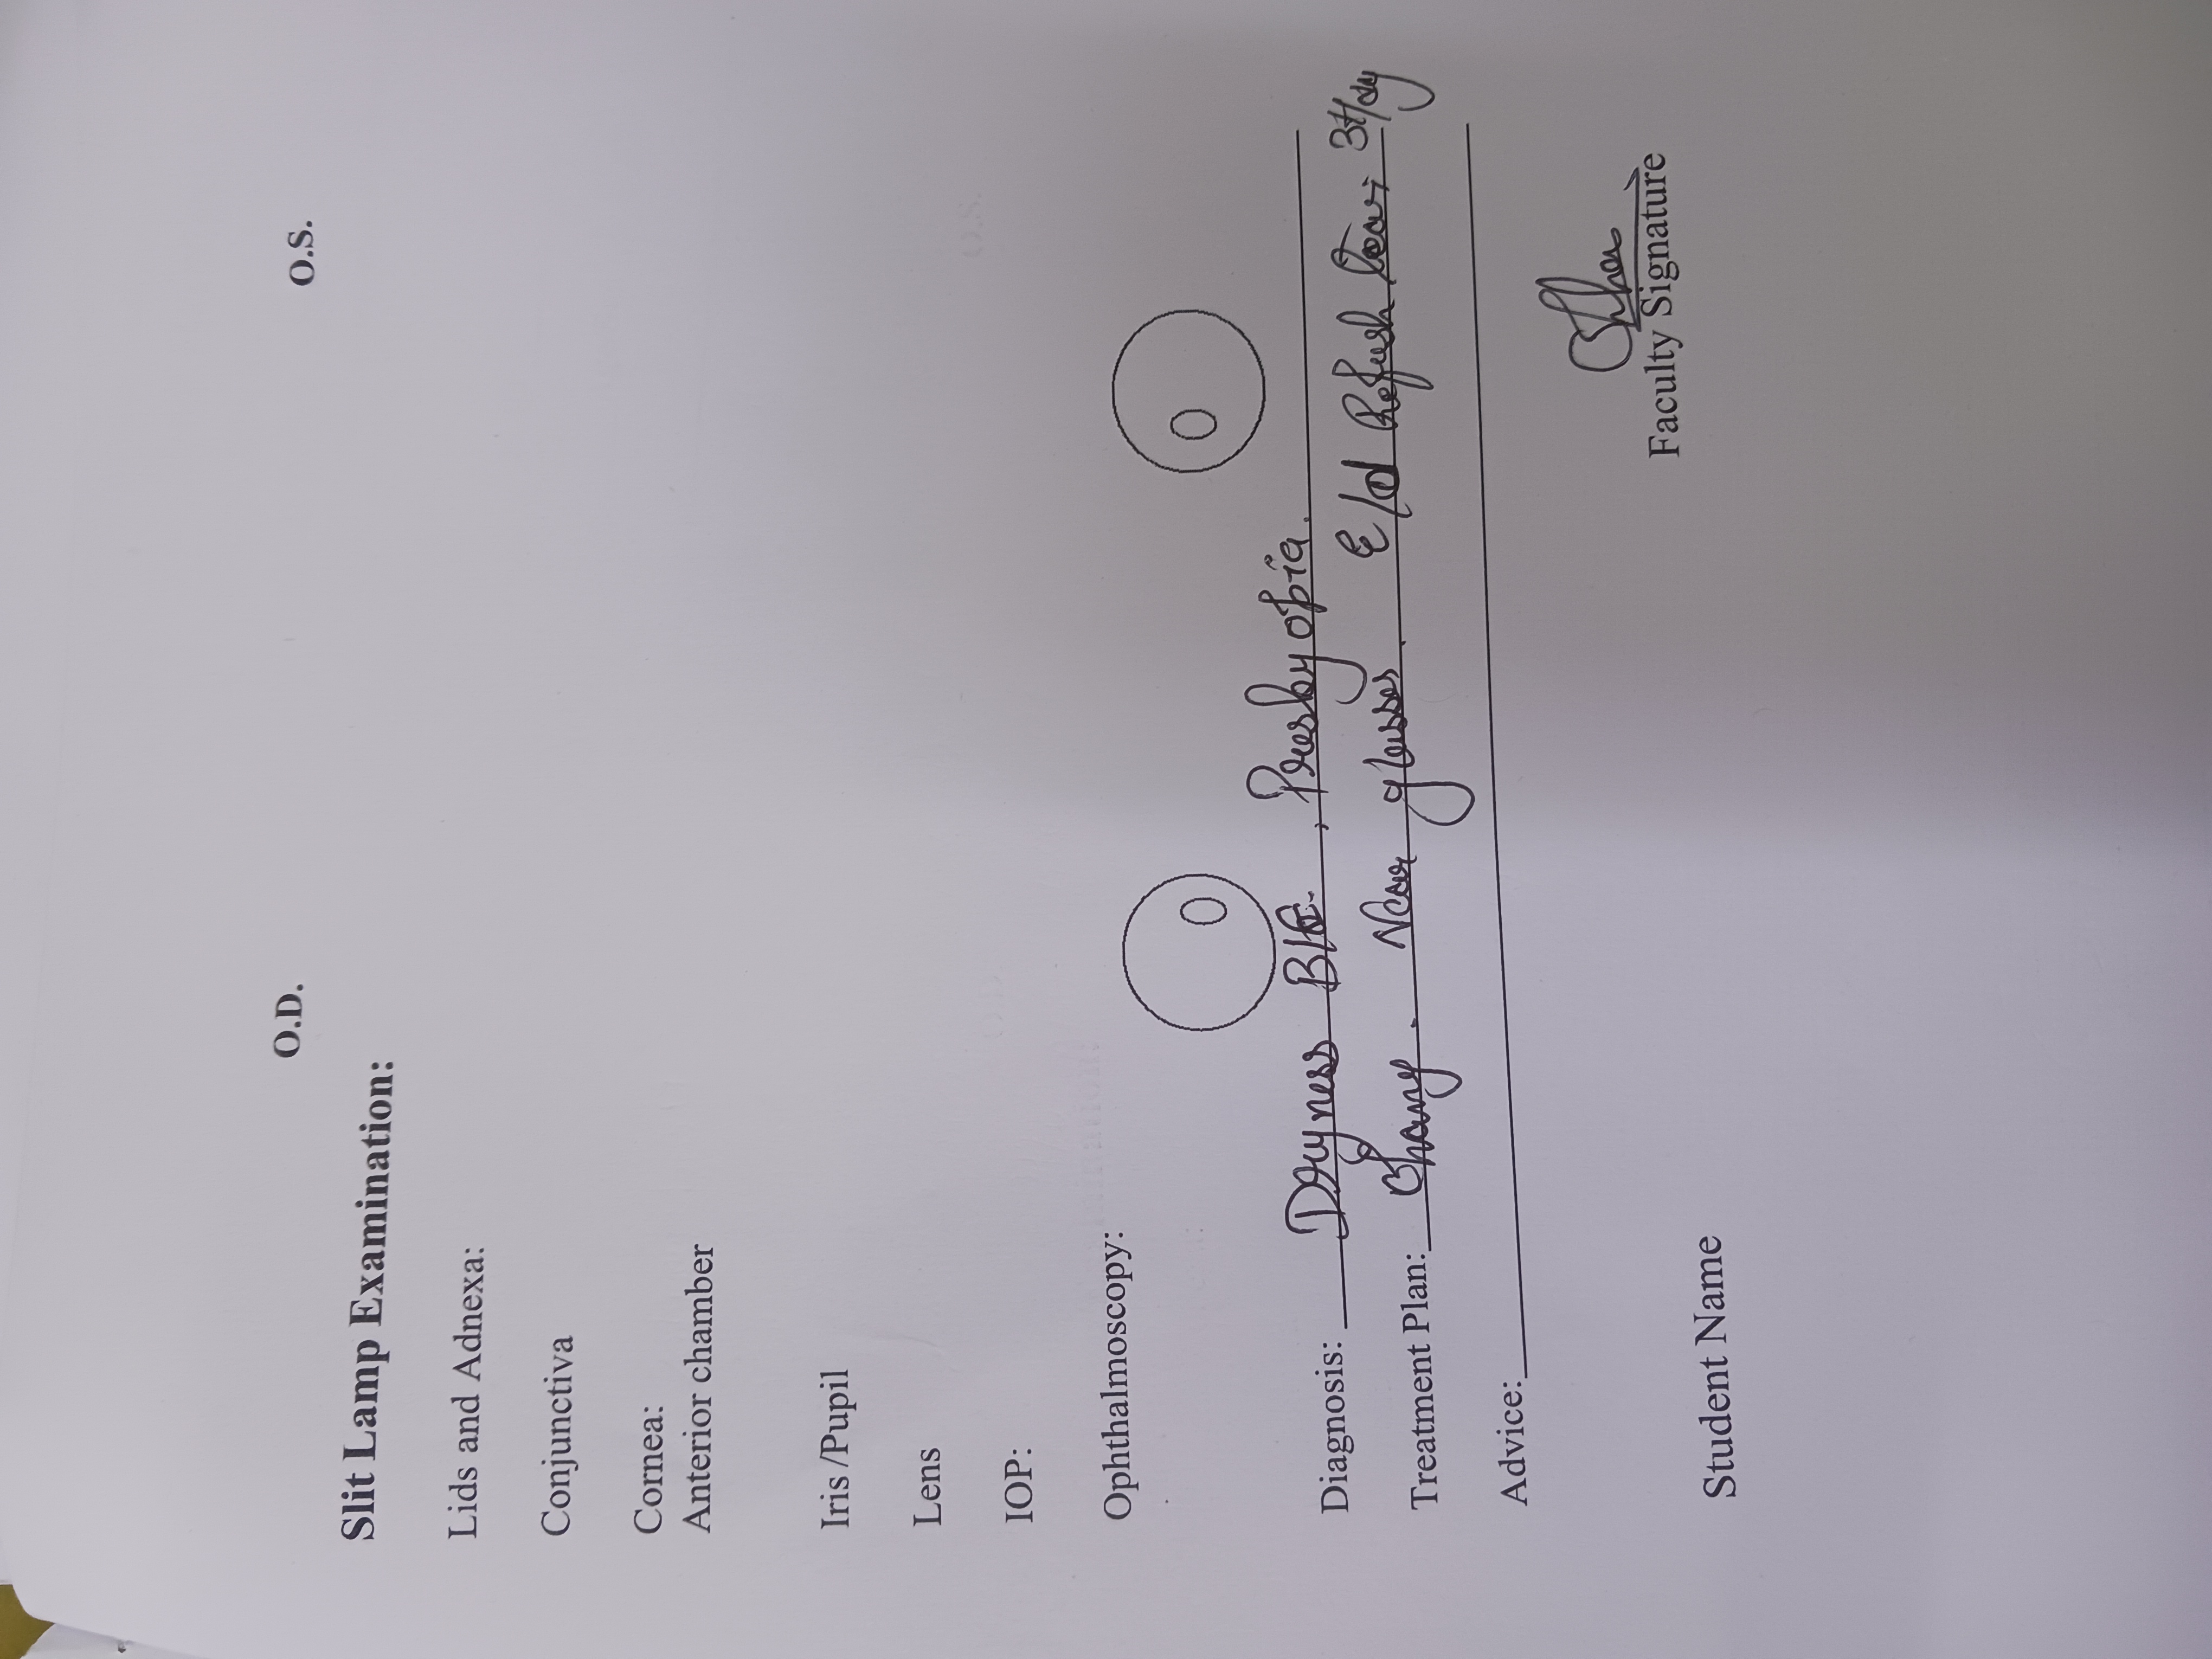 O.D. O.S.
Slit Lamp Examination:
Lids and Adnexa:
Conjunctiva
Cornea:
Anterior chamber
Iris /Pupil
Lens
IOP:
Ophthalmoscopy:
Diagnosis: Dryness B/E , Presbyopia.
Treatment Plan: Change Near glasses. E/d Refresh tears 3t/dy
Advice:
Faculty Signature
Student Name